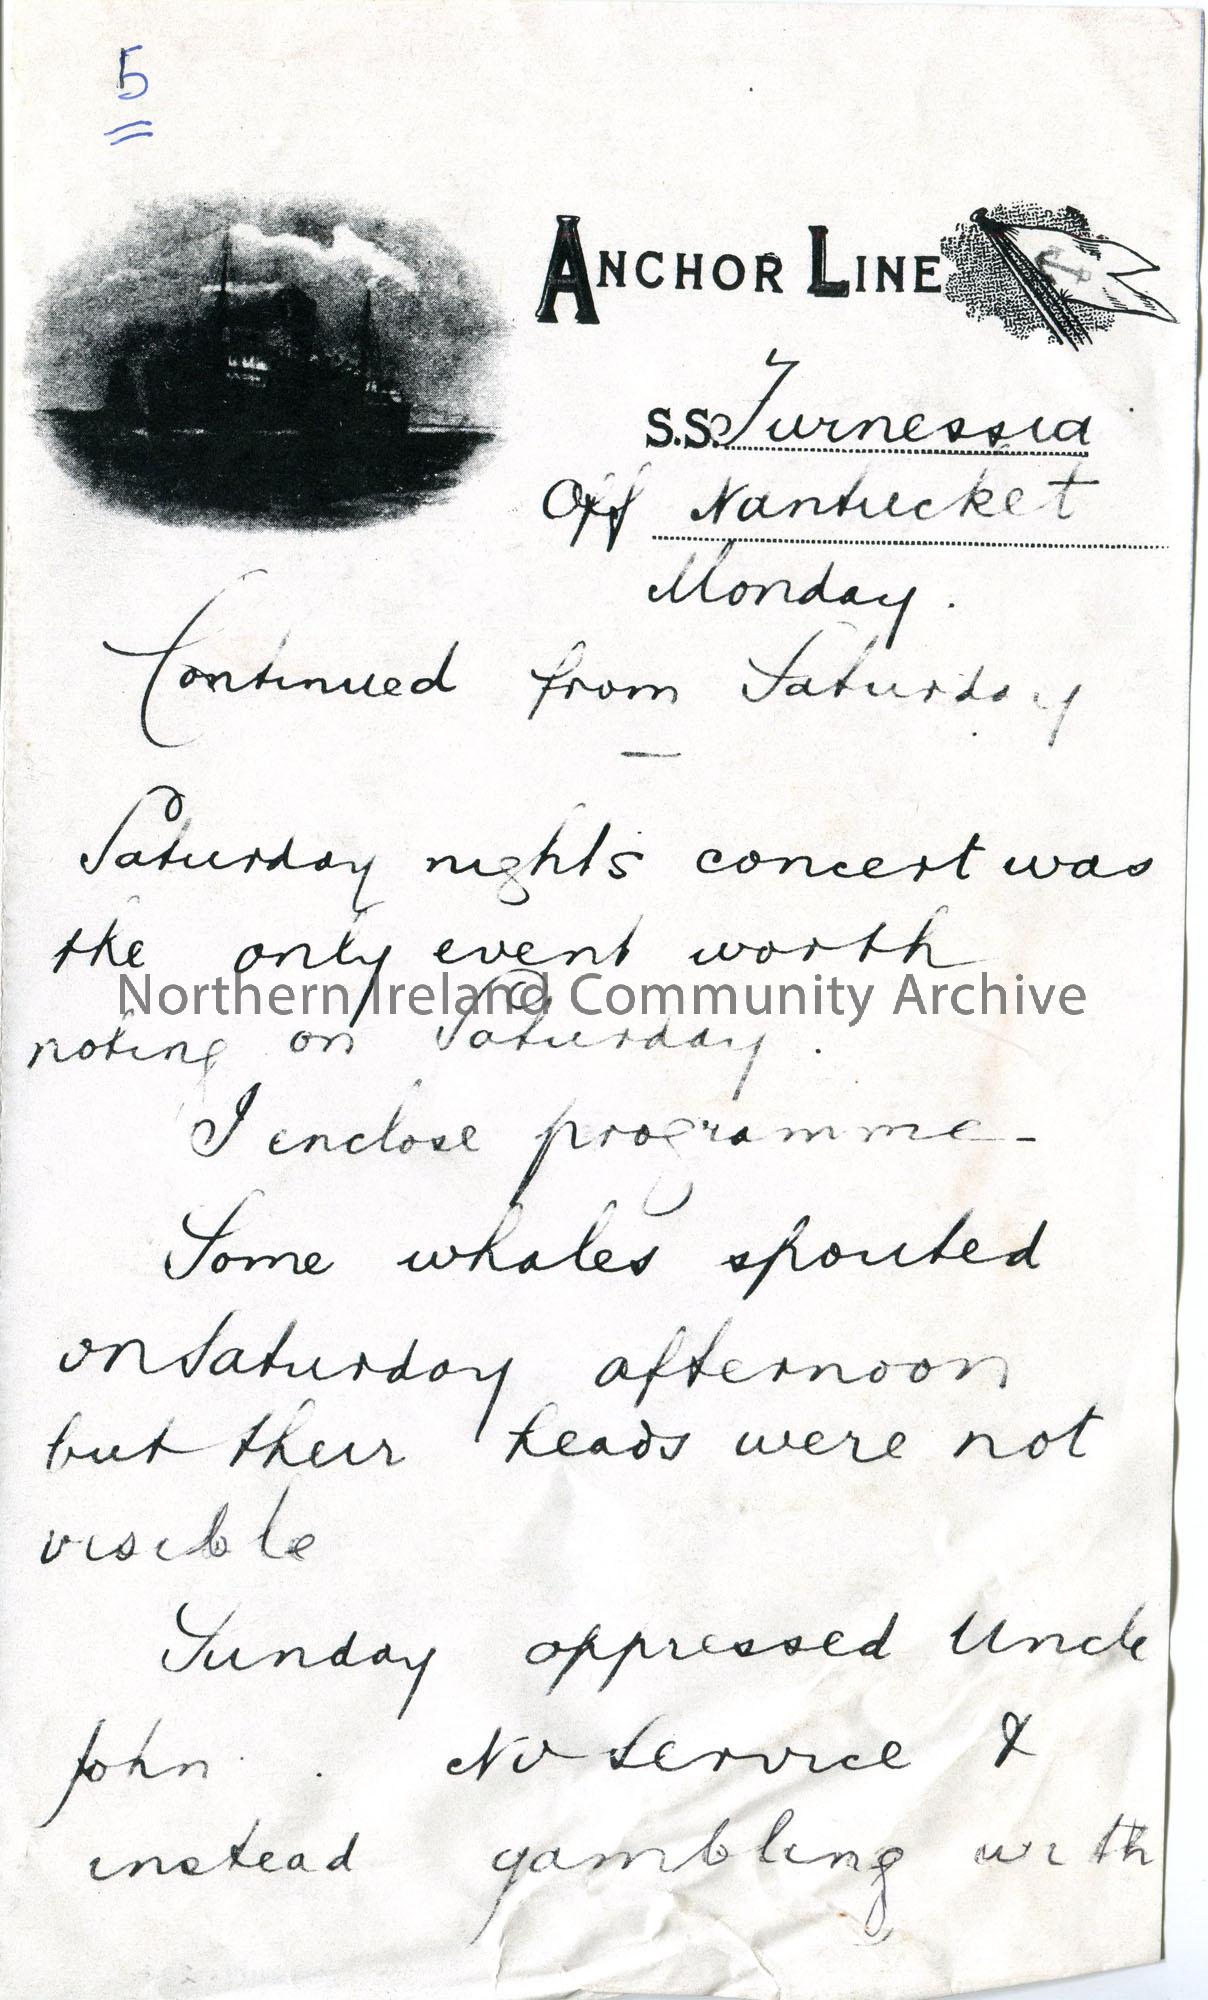 5
ANCHOR LINE
S.S. Furnessia
Off Nantucket
Monday.
Continued from Saturday
—
Saturday nights concert was
the only event worth
Northern Ireland Community Archive
noting on Saturday.
I enclose programme -
Some whales spouted
on Saturday afternoon
but their heads were not
visible
Sunday oppressed Uncle
John. No service &
instead gambling with